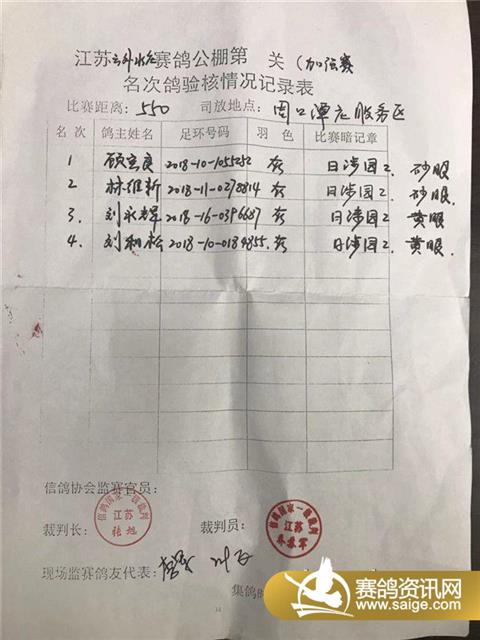 江苏 赛鸽公棚第 关(加强赛
名次鸽验核情况记录表
比赛距离:550 司放地点:周口 服务区
名次 鸽主姓名 足环号码 羽色 比赛暗记章
1 顾 良 2018-10-1055252 灰 日涉园2 砂眼
2 林维新 2018-11-0278814 灰 日涉园2. 砂眼.
3. 刘永辉 2018-16-0396687 灰 日涉园2 黄眼
4. 刘和松 2018-10-0184855. 灰 日涉园2. 黄眼.
信鸽协会监赛官员:
裁判长: 信鸽国家一级裁判 江苏 张旭 裁判员: 信鸽国家一级裁判 江苏
现场监赛鸽友代表:
集鸽
赛鸽资讯网
www.saige.com